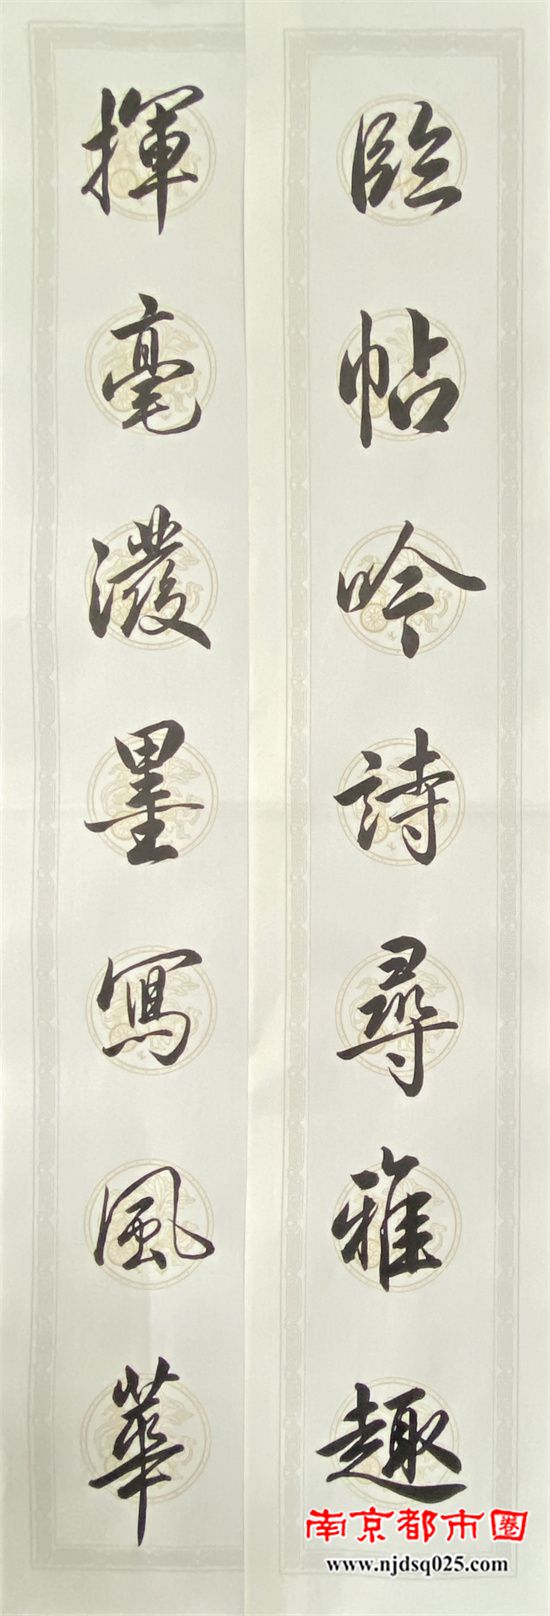 臨帖吟詩尋雅趣
揮毫潑墨寫風華
南京都市圈
www.njdsq025.com